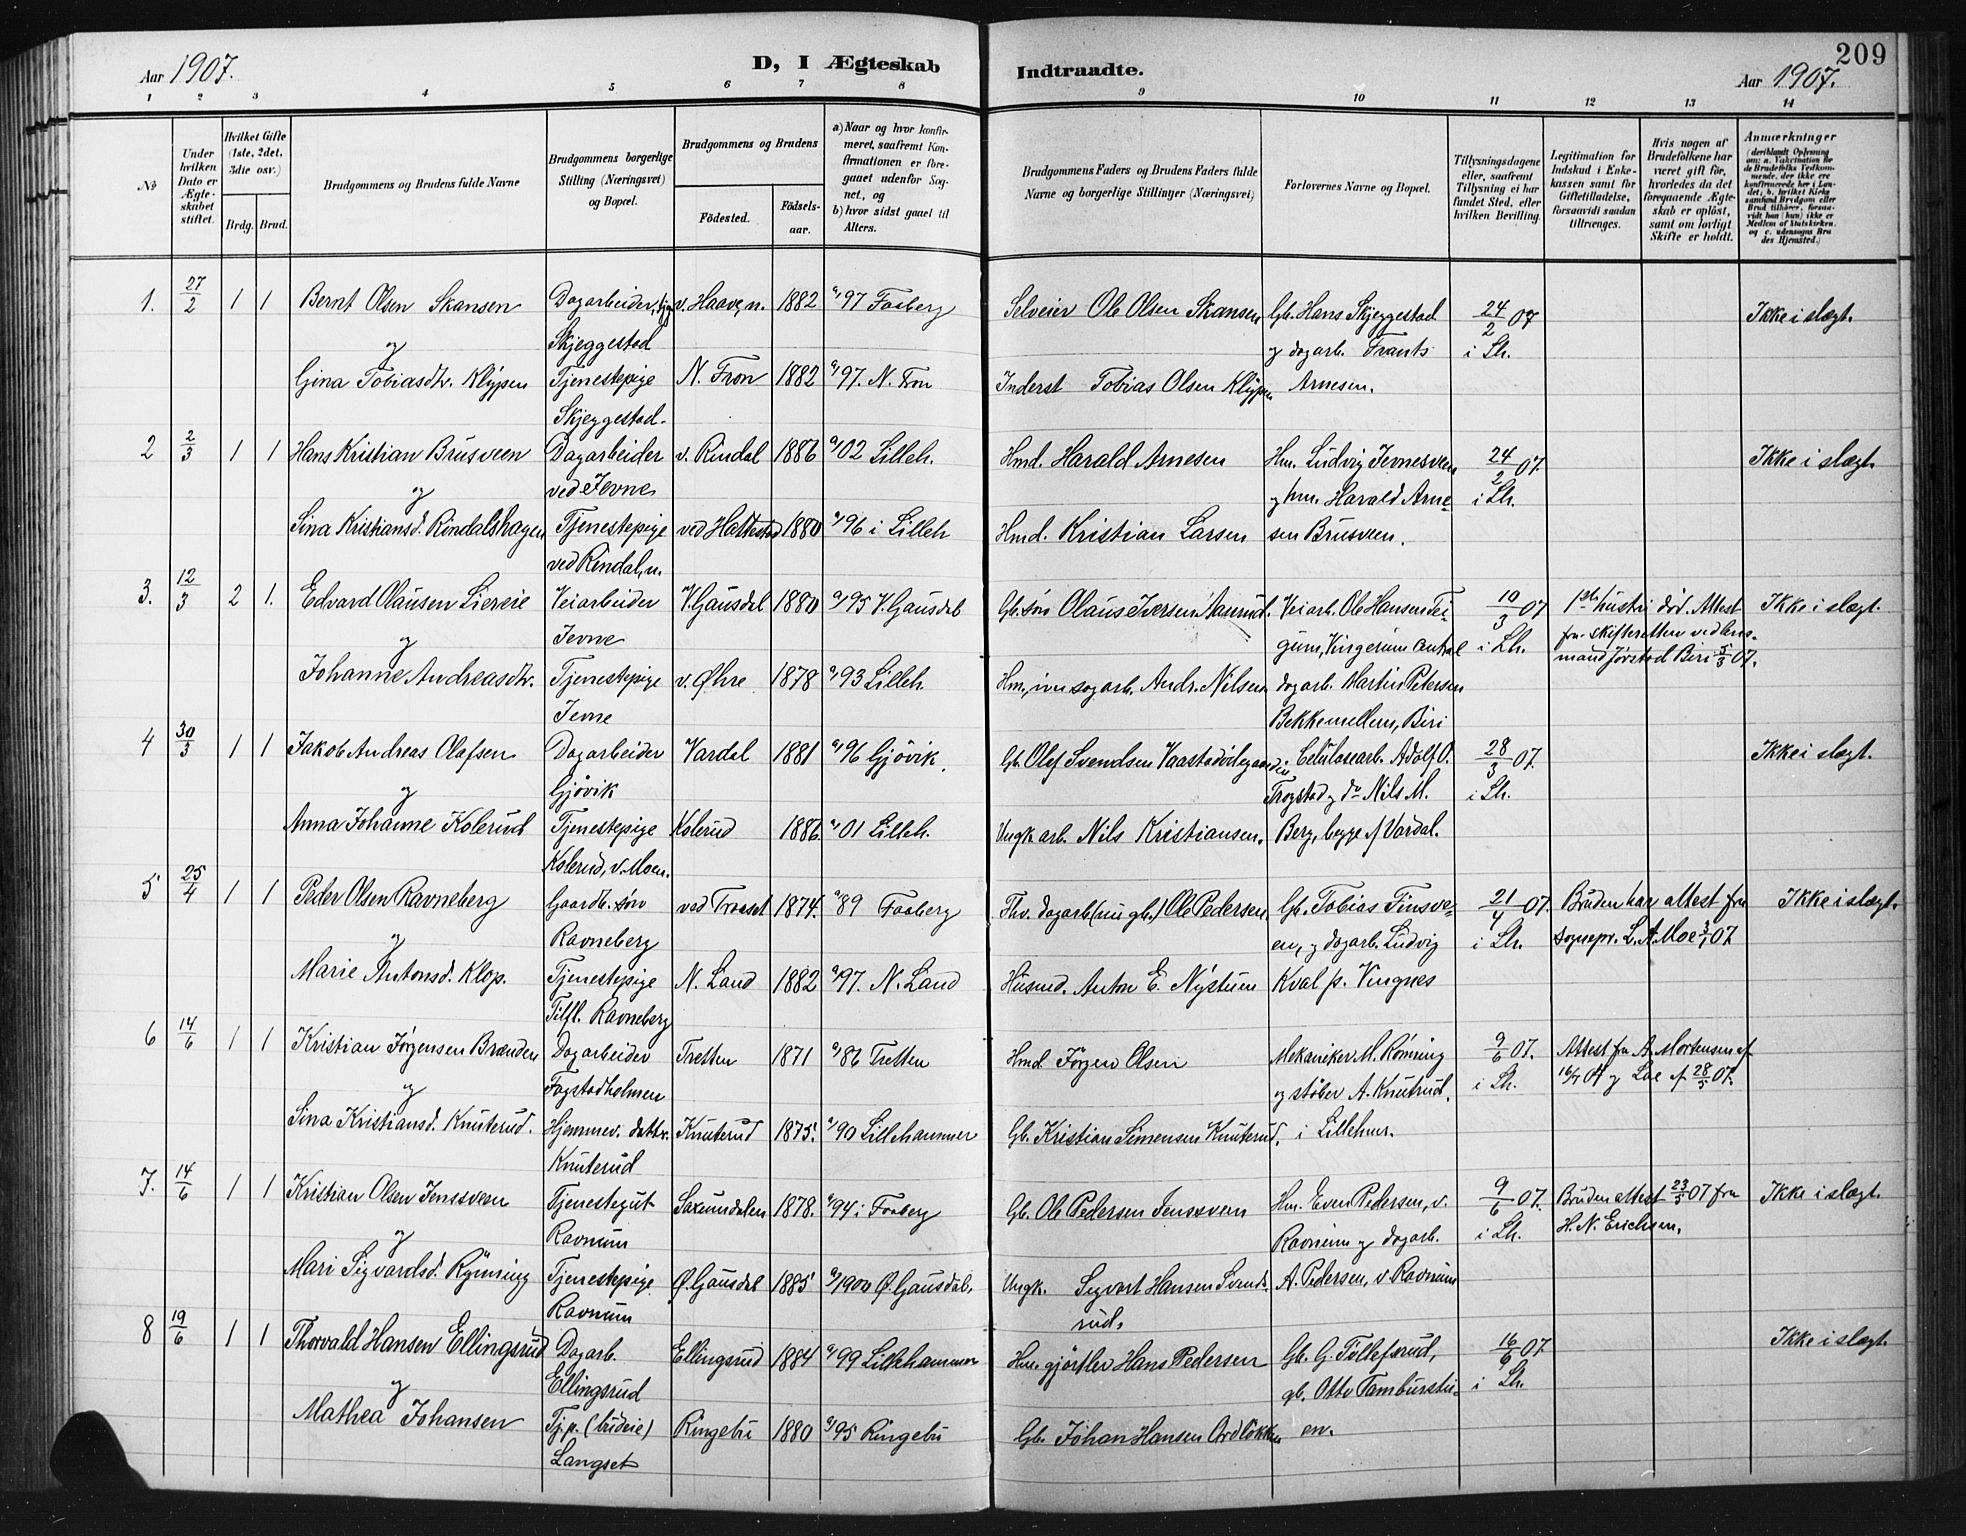 209
Aar 1907.
D, I Ægteskab Indtraadte.
Aar 1907.
1 2 3 4 5 6 7 8 9 10 11 12 13 14
No
Under hvilken Dato er Ægteskabet stiftet.
Hvilket Gifte (1ste, 2det, 3die osv.)
Brdg. Brud.
Brudgommens og Brudens fulde Navne
Brudgommens borgerlige Stilling (Næringsvei) og Bopæl.
Brudgommens og Brudens
Födested.
Födselsaar.
a) Naar og hvor konfirmeret, saafremt Konfirmationen er foregaaet udenfor Sognet, og
b) hvor sidst gaaet til Alters.
Brudgommens Faders og Brudens Faders fulde Navne og borgerlige Stillinger (Næringsvei)
Forlovernes Navne og Bopæl.
Tillysningsdagene eller, saafremt Tillysning ei har fundet Sted, efter hvilken Bevilling.
Legitimation for Indskud i Enkekassen samt for Giftetilladelse, forsaavidt saadan tiltrænges.
Hvis nogen af Brudefolkene har været gift før, hvorledes da det foregaaende Ægteskab er opløst, samt om lovligt Skifte er holdt.
Anmærkninger
1. 27/2 1 1 Bernt Olsen Skansen Dagarbeider, v. Haave, n. 1882 a/97 Faaberg Selveier Ole Olsen Skansen Gb. Hans Skjeggestad 24/2 07 Ikke i slægt.
og Skjeggestad og dagarb. Frants i Lh.
Gina Tobiasdtr. Klypen Tjenestepige N. Fron 1882 a/97. N. Fron Inderst Tobias Olsen Klypen Arnesen.
Skjeggestad.
2 2/3 1 1 Hans Kristian Brusveen Dagarbeider v. Rindal 1886 a/02 Lilleh. Hmd. Harald Arnesen Hm. Ludvig Jevnesveen 24/2 07. Ikke i slægt.
og ved Jevne og hm. Harald Arne- i Lh.
Sina Kristiansd. Rindalshagen Tjenestepige ved Hattestad 1880 a/96 i Lilleh Hmd. Kristian Larsen sen Brusveen.
ved Rindal, n.
3. 12/3 2 1. Edvard Olausen Liereie Veiarbeider V. Gausdal 1880 a/95 V. Gausdal Gb. søn Olaus Iversen Aanrud. Veiarb. Ole Hansen Tei- 10/3 07 1ste hustru død. Attest Ikke i slægt.
og Jevne gum, Vingerum i Lh. fra skifteretten ved lens-
mand Jørstad Biri 5/3 07.
Johanne Andreasdtr. Tjenestepige v. Øhre 1878 a/93 Lilleh. Andr. Nilsen dagarb. Martin Petersen
Jevne Bekkemellem, Biri
4 30/3 1 1 Jakob Andreas Olafsen Dagarbeider Vardal 1881 a/96 Gjövik. Gb. Olef Svendsen Celulosearb. Adolf O. 28/3 07. Ikke i slægt.
og Gjövik Trogstad og do Nils M. i Lh.
Anna Johanne Kolerud Tjenestepige Kolerud 1886. a/01 Lilleh. Ungk arb. Nils Kristiansen. Berg, begge af Vardal.
Kolerud, v. Moen.
5 25/4 1 1 Peder Olsen Ravneberg Gaardb. søn ved Traaset 1874. a/89 Faaberg Fhv. dagarb (nu gb.) Ole Pedersen Gb. Tobias Finsve- 21/4 07. Bruden har attest fra Ikke i slægt.
og Ravneberg en, og dagarb. Ludvig i Lh. sognepr. L. A. Moe 3/1 07
Marie Antonsd. Klop. Tjenestepige N. Land 1882 a/97. N. Land Husmd. Anton E. Nystuen Kval p. Vingnes
Tilfl. Ravneberg
6 14/6 1 1 Kristian Jørgensen Brænden Dagarbeider Tretten 1871 a/86 Tretten Hmd. Jörgen Olsen Mekaniker M. Römring 9/6 07. Attest fra A. Mortensen af
og Fagstadholmen og støber A. Knutrud, i Lh. 28/5 07.
Sina Kristiansd. Knuterud. Hjemmev. datter Knuterud 1875. a/90 Lillehammer Gb. Kristian Simensen Knuterud. i Lillehmr.
Knuterud
7. 14/6 1 1 Kristian Olsen Jenssveen Tjenestegut Saxumdalen 1878. a/94 i Faaberg Gb. Ole Pedersen Jenssveen Hm. Even Pedersen, v. 9/6 07. Bruden attest 23/5 07 fra Ikke i slægt.
og Ravnum Ravnum og dagarb. i Lh. H. N. Erichsen.
Mari Sigvardsd. Rymring Tjenestepige Ø. Gausdal 1885 a/1900 Ø. Gausdal. Ungk. Sigvart Hansen Svends- A. Pedersen, v. Ravnum
Ravnum rud.
8 19/6 1 1 Thorvald Hansen Ellingsrud Dagarb. Ellingsrud 1884 a/99 Lillehammer Hm. gjörtler Hans Pedersen Gb. G. Tollefsrud, 16/6 07. Ikke i slægt.
og Ellingsrud gb. Otto Tamburstu- i Lh.
Mathea Johansen Tj.p. (budeie) Ringebu 1880 a/95 Ringebu Gb. Johan Hansen en.
Langset